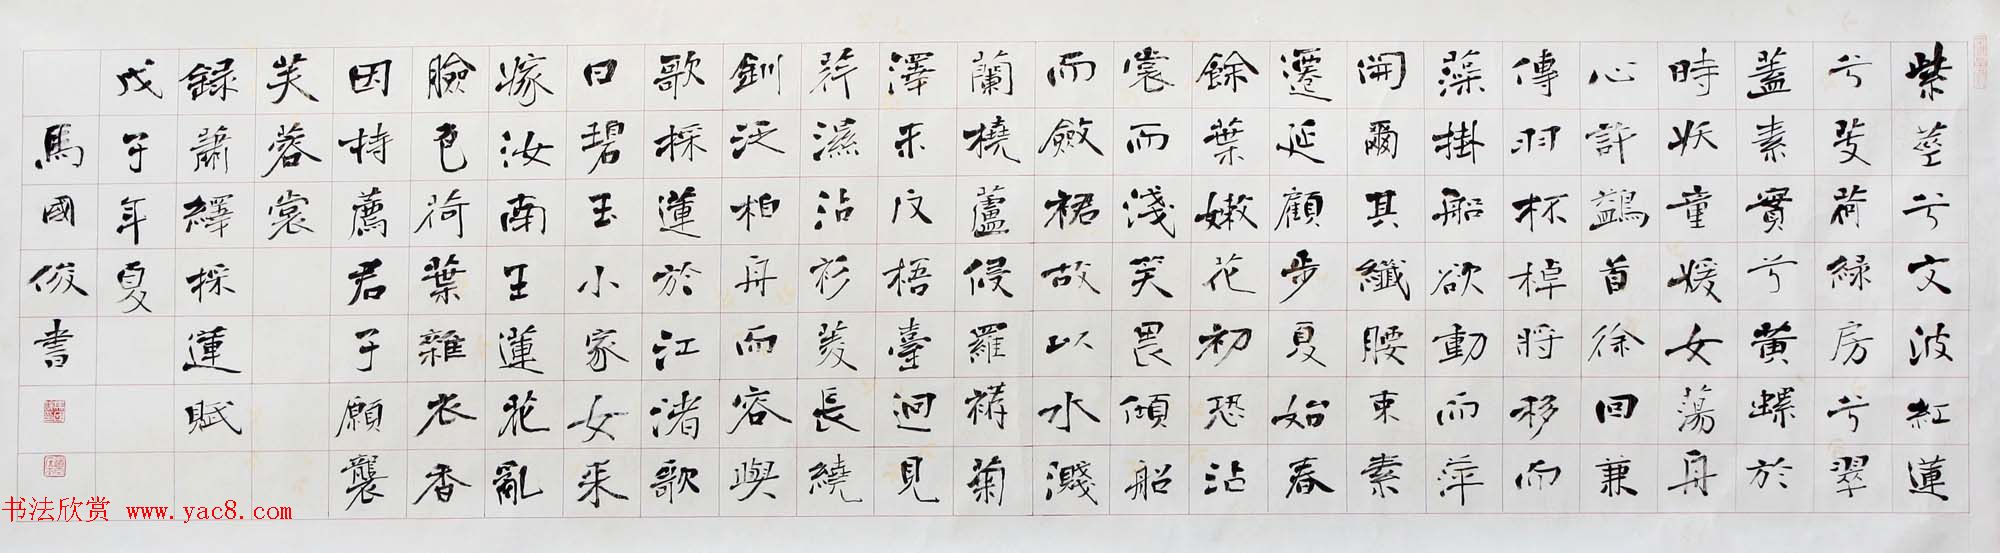 紫莖兮文波紅蓮
兮芰荷綠房兮翠
蓋素實兮黃螺於
時妖童媛女蕩舟
心許鷁首徐回兼
傳羽杯棹將移而
藻掛船欲動而萍
開爾其纖腰束素
遷延顧步夏始春
餘葉嫩花初恐沾
裳而淺笑畏傾船
而斂裾故以水濺
蘭橈蘆侵羅褠菊
澤未反梧臺迥見
荇濕沾衫菱長繞
釧泛柏舟而容與
歌採蓮於江渚歌
曰碧玉小家女來
嫁汝南王蓮花亂
臉色荷葉雜衣香
因持薦君子願襲
芙蓉裳
録蕭繹採蓮賦
戊子年夏
馬國俊書
书法欣赏 www.yac8.com